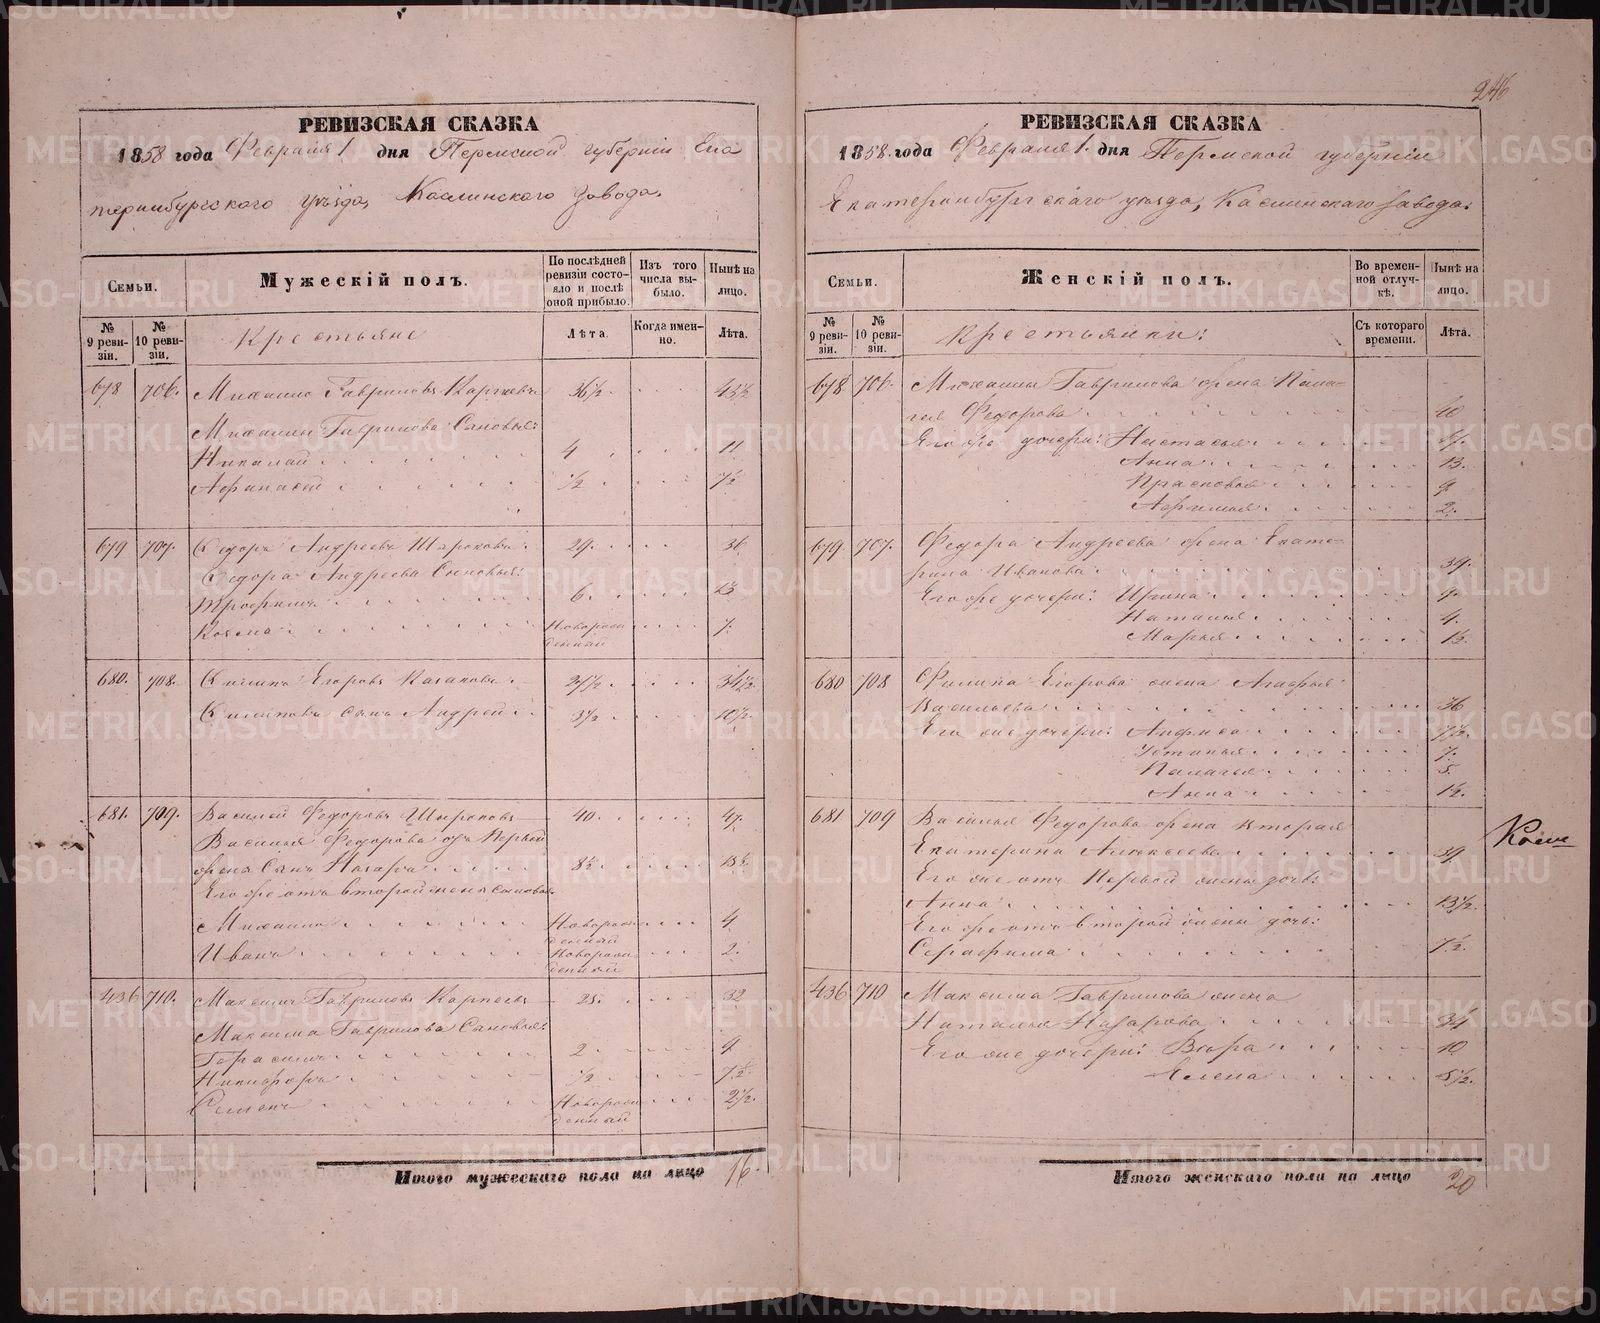 РЕВИЗСКАЯ СКАЗКА
1858 года Февраля 1 дня Пермской губернiи Ека
теринбургскаго уѣзда, Каслинского завода.
Семьи.
Мужескiй полъ.
По послѣдней ревизiи состояло и послѣ оной прибыло.
Изъ того числа выбыло.
Нынѣ на лицо.
№ 9 ревизiи.
№ 10 ревизiи.
Крестьяне
Лѣта.
Когда именно.
Лѣта.
678 706. Михаило Гавриловъ 36½ 43½
Михаилы Гаврилова Сыновья:
Николай 4 11
Афанасей ½ 7½
679 707. Федоръ Андреевъ 29. 36
Федора Андреева Сыновья:
Трофимъ 6. 13
Козма Новорожденный 7.
680. 708. Егоровъ Казаковъ 34½
сынъ Андрей 3½ 10½
681. 709. Василей Федоровъ Широковъ 40. 47.
Василья Федорова отъ Первой
жены Сынъ Назаръ 8½ 15½
Его же отъ второй жены сыновья
Михаило Новорожденный 4
Иванъ Новорожденный 2.
436 710. Максимъ Гавриловъ Карпеевъ 25. 32
Максима Гаврилова Сыновья:
Герасимъ 2 9
Никифоръ ½ 7½
Семенъ Новорожденный 2½.
Итого мужескаго пола на лицо 16.
246
РЕВИЗСКАЯ СКАЗКА
1858. года Февраля 1. дня Пермской губернiи
Екатеринбургскаго уѣзда, Каслинскаго завода.
Семьи.
Женскiй полъ.
Во временной отлучкѣ.
Нынѣ на лицо.
№ 9 ревизiи.
№ 10 ревизiи.
Крестьянки:
Съ котораго времени.
Лѣта.
678 706. Михаилы Гаврилова жена Пала-
гея Федорова 40
Его же дочери: Настасья 17.
Анна 13.
Прасковья 9
Афимья 2.
679. 707. Федора Андреева жена Екате-
рина Иванова 39.
Его же дочери: Ирина 9.
Наталья 4.
Марья 1½.
680 708 Филипа Егорова жена Агафья
Васильева 36
Его же дочери: Анфиса
Устинья 7.
Палагея 5.
Анна 1½.
681 709 Василья Федорова жена вторая
Екатерина Алексѣева 39
Его же отъ Первой жены дочь:
Анна 13½.
Его же отъ второй жены дочь:
Серафима 7½.
436 710 Максима Гаврилова жена
Наталья Назарова 34
Его же дочери: Вѣра 10
Елена 5½.
Итого женскаго пола на лицо 20
METRIKI.GASO-URAL.RU